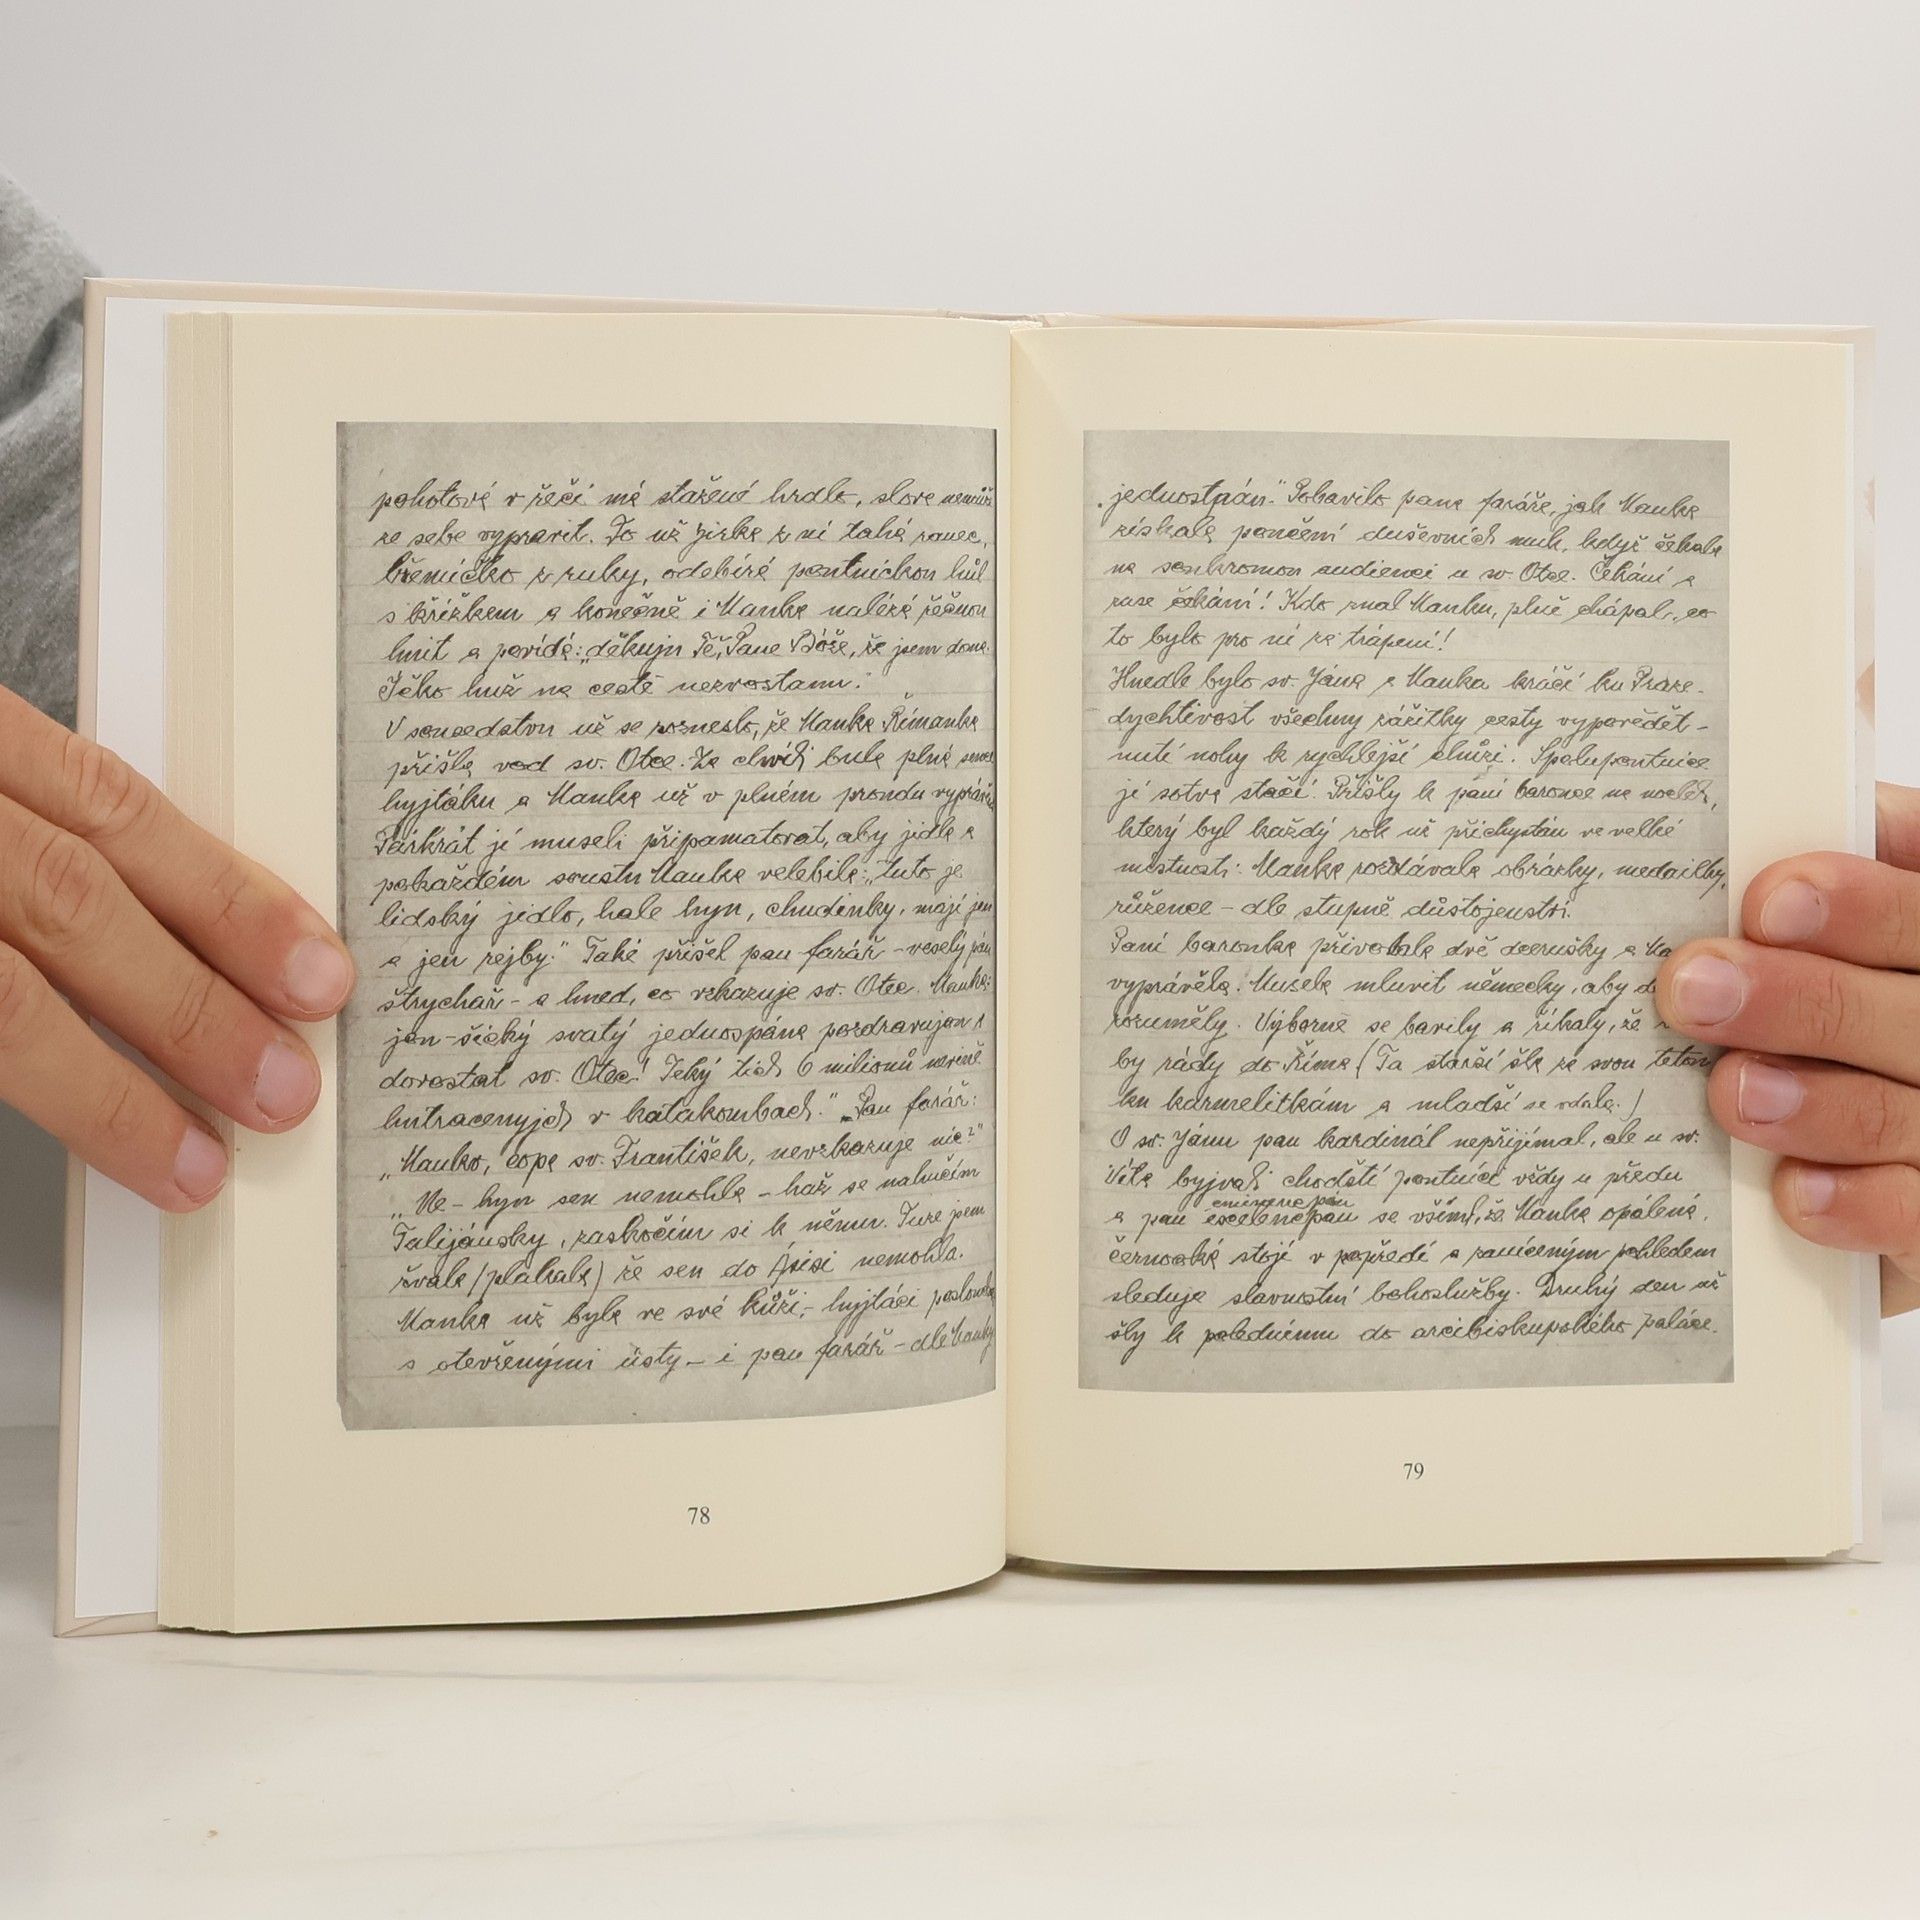 pohotová v řeči má stažené hrdlo, slova nemůže
ze sebe vypravit. To už Jirka z ní tahá ranec,
břemíčko z ruky, odebírá poutnickou hůl
s křížkem a konečně i Hanka nalézá řečnou
hnit a povídá: „děkuju Tě, Pane Bóže, že jsem doma.
Ičko huž na cestě nezvostanu."
V sousedstvu už se rozneslo, že Hanka Římanka
přišla vod sv. Otce. Za chvíli bula plná
hyjtáku a Hanka už v plném proudu
Párkrát jí museli připamatovat, aby jidla a
pokaždém soustu Hanka velebila: „tuto je
lidský jidlo, hale hyn, chudinky, mají jen
a jen rejby." Také přišel pan farář – veselý pán
štrychář – a hned, co vzkazuje sv. Otec. Hanka:
jen – šický svatý jednospána pozdravujou a
dorostat sv. Otec! Ický tich 6 milionů
hutracenyjch v katakombach." „Pan farář:
„Hanko, copa sv. František, nevzkazuje nic?"
„Ne – hyn sen nemohla – haž se nahučím
Talijánsky, zaskočím si k němu. Tuze jsem
žvala (plakala) že sen do Asisi nemohla.
Hanka už byla ve své kůži, – hyjtáci
s otevřenými ústy – i pan farář – dle Hanky
78
jednostpán." Pobavilo pana faráře, jak Hanka
získala poučení duševních muk, když čekala
na soukromou audienci u sv. Otce. Čekání a
zase čekání! Kdo znal Hanku, plně chápal, co
to bylo pro ní za trápení!
Hnedle bylo sv. Jána a Hanka kráčí ku Praze.
dychtivost všechny zážitky cesty vypovědět –
nutí nohy k rychlejší chůzi. Spolupoutnice
jí sotva stačí. Přišly k paní baronce na nocleh,
který byl každý rok už přichystán ve velké
místnosti: Hanka rozdávala obrázky, medailky,
růžence – dle stupně důstojenství.
Paní baronka přivolala dvě dcerušky a Ha
vyprávěla. Musela mluvit německy, aby d
rozuměly. Výborně se bavily a říkaly, že
by rády do Říma (Ta starší šla za svou tetou
ku karmelitkám a mladší se vdala.)
O sv. Jánu pan kardinál nepřijímal, ale u sv.
Víta byjvali chodští poutníci vždy u předu
eminenc pán
a pan excelencpan se všiml, že Hanka opálená,
černooká stojí v popředí a zaníceným pohledem
sleduje slavnostní bohoslužby. Druhý den už
šly k polednímu do arcibiskupského paláce.
79